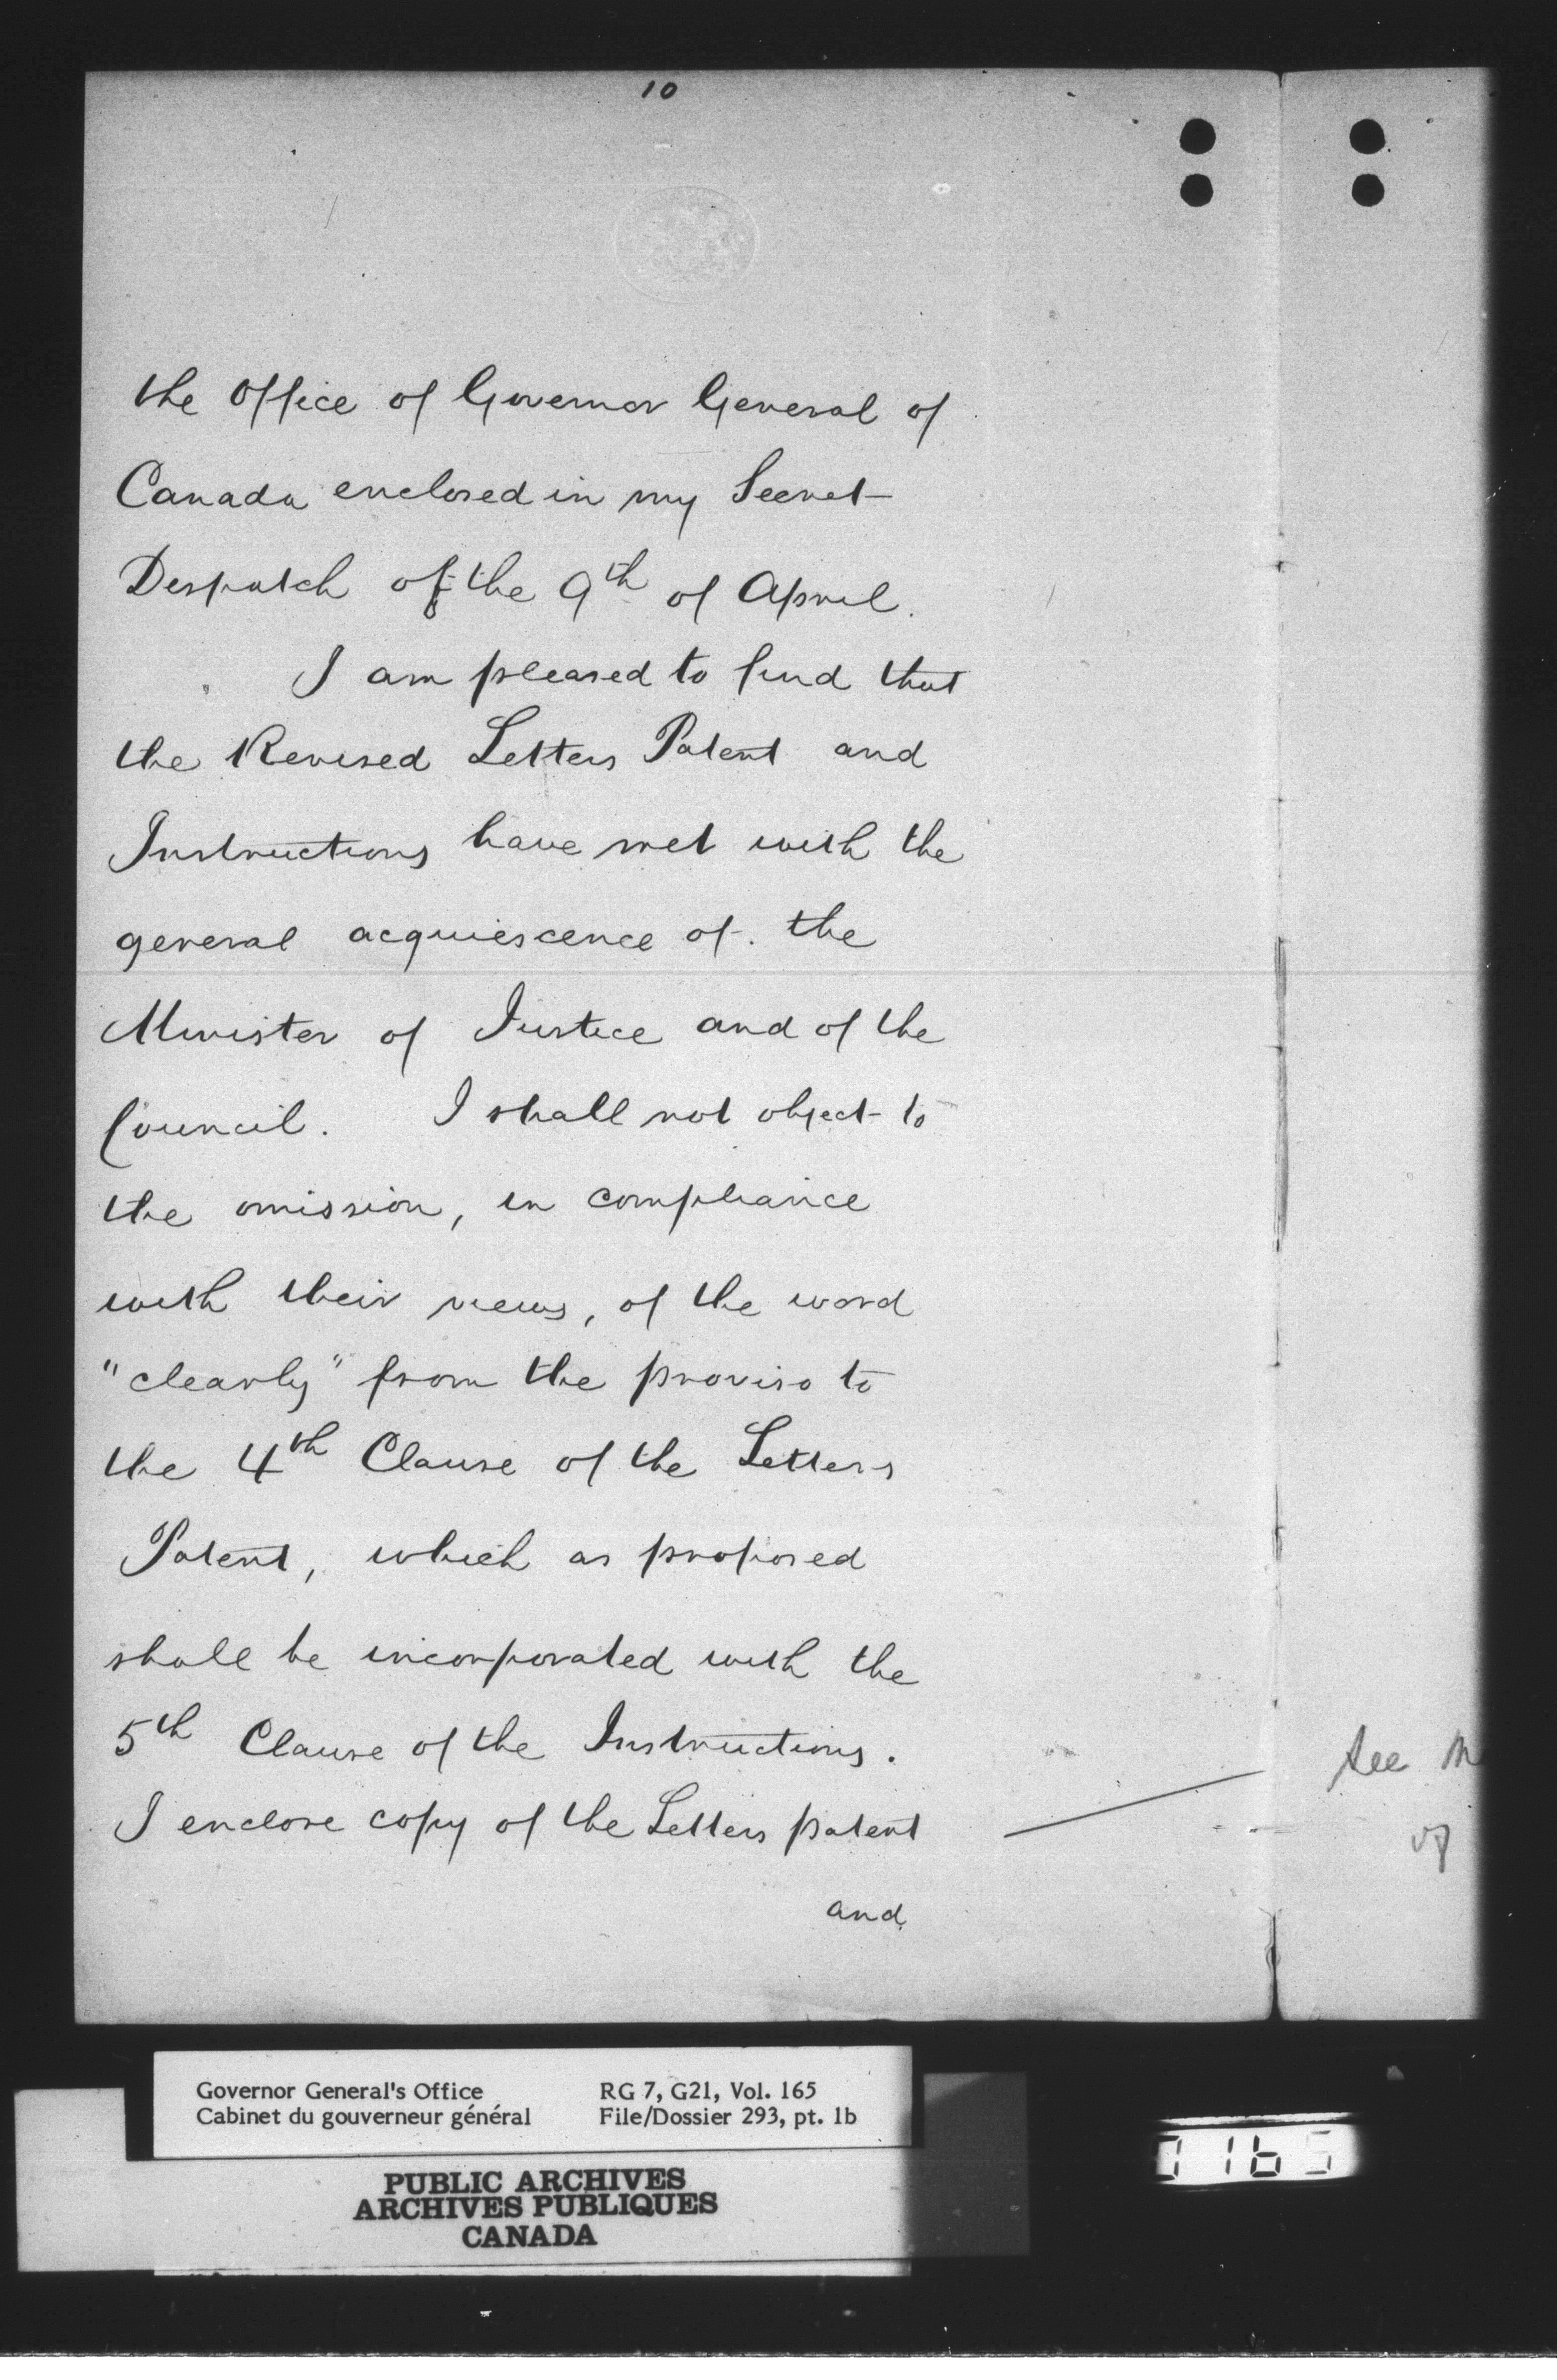 10
the Office of Governor General of
Canada enclosed in my Secret
Despatch of the 9th of April.
I am pleased to find that
the Revised Letters Patent and
Instructions have met with the
general acquiescence of the
Minister of Justice and of the
Council. I shall not object to
the omission, in compliance
with their views, of the word
"clearly" from the proviso to
the 4th Clause of the Letters
Patent, which as proposed
shall be incorporated with the
5th Clause of the Instructions.
I enclose copy of the Letters patent
and
See
of
Governor General's Office RG 7, G21, Vol. 165
Cabinet du gouverneur général File/Dossier 293, pt. 1b
PUBLIC ARCHIVES
ARCHIVES PUBLIQUES
CANADA